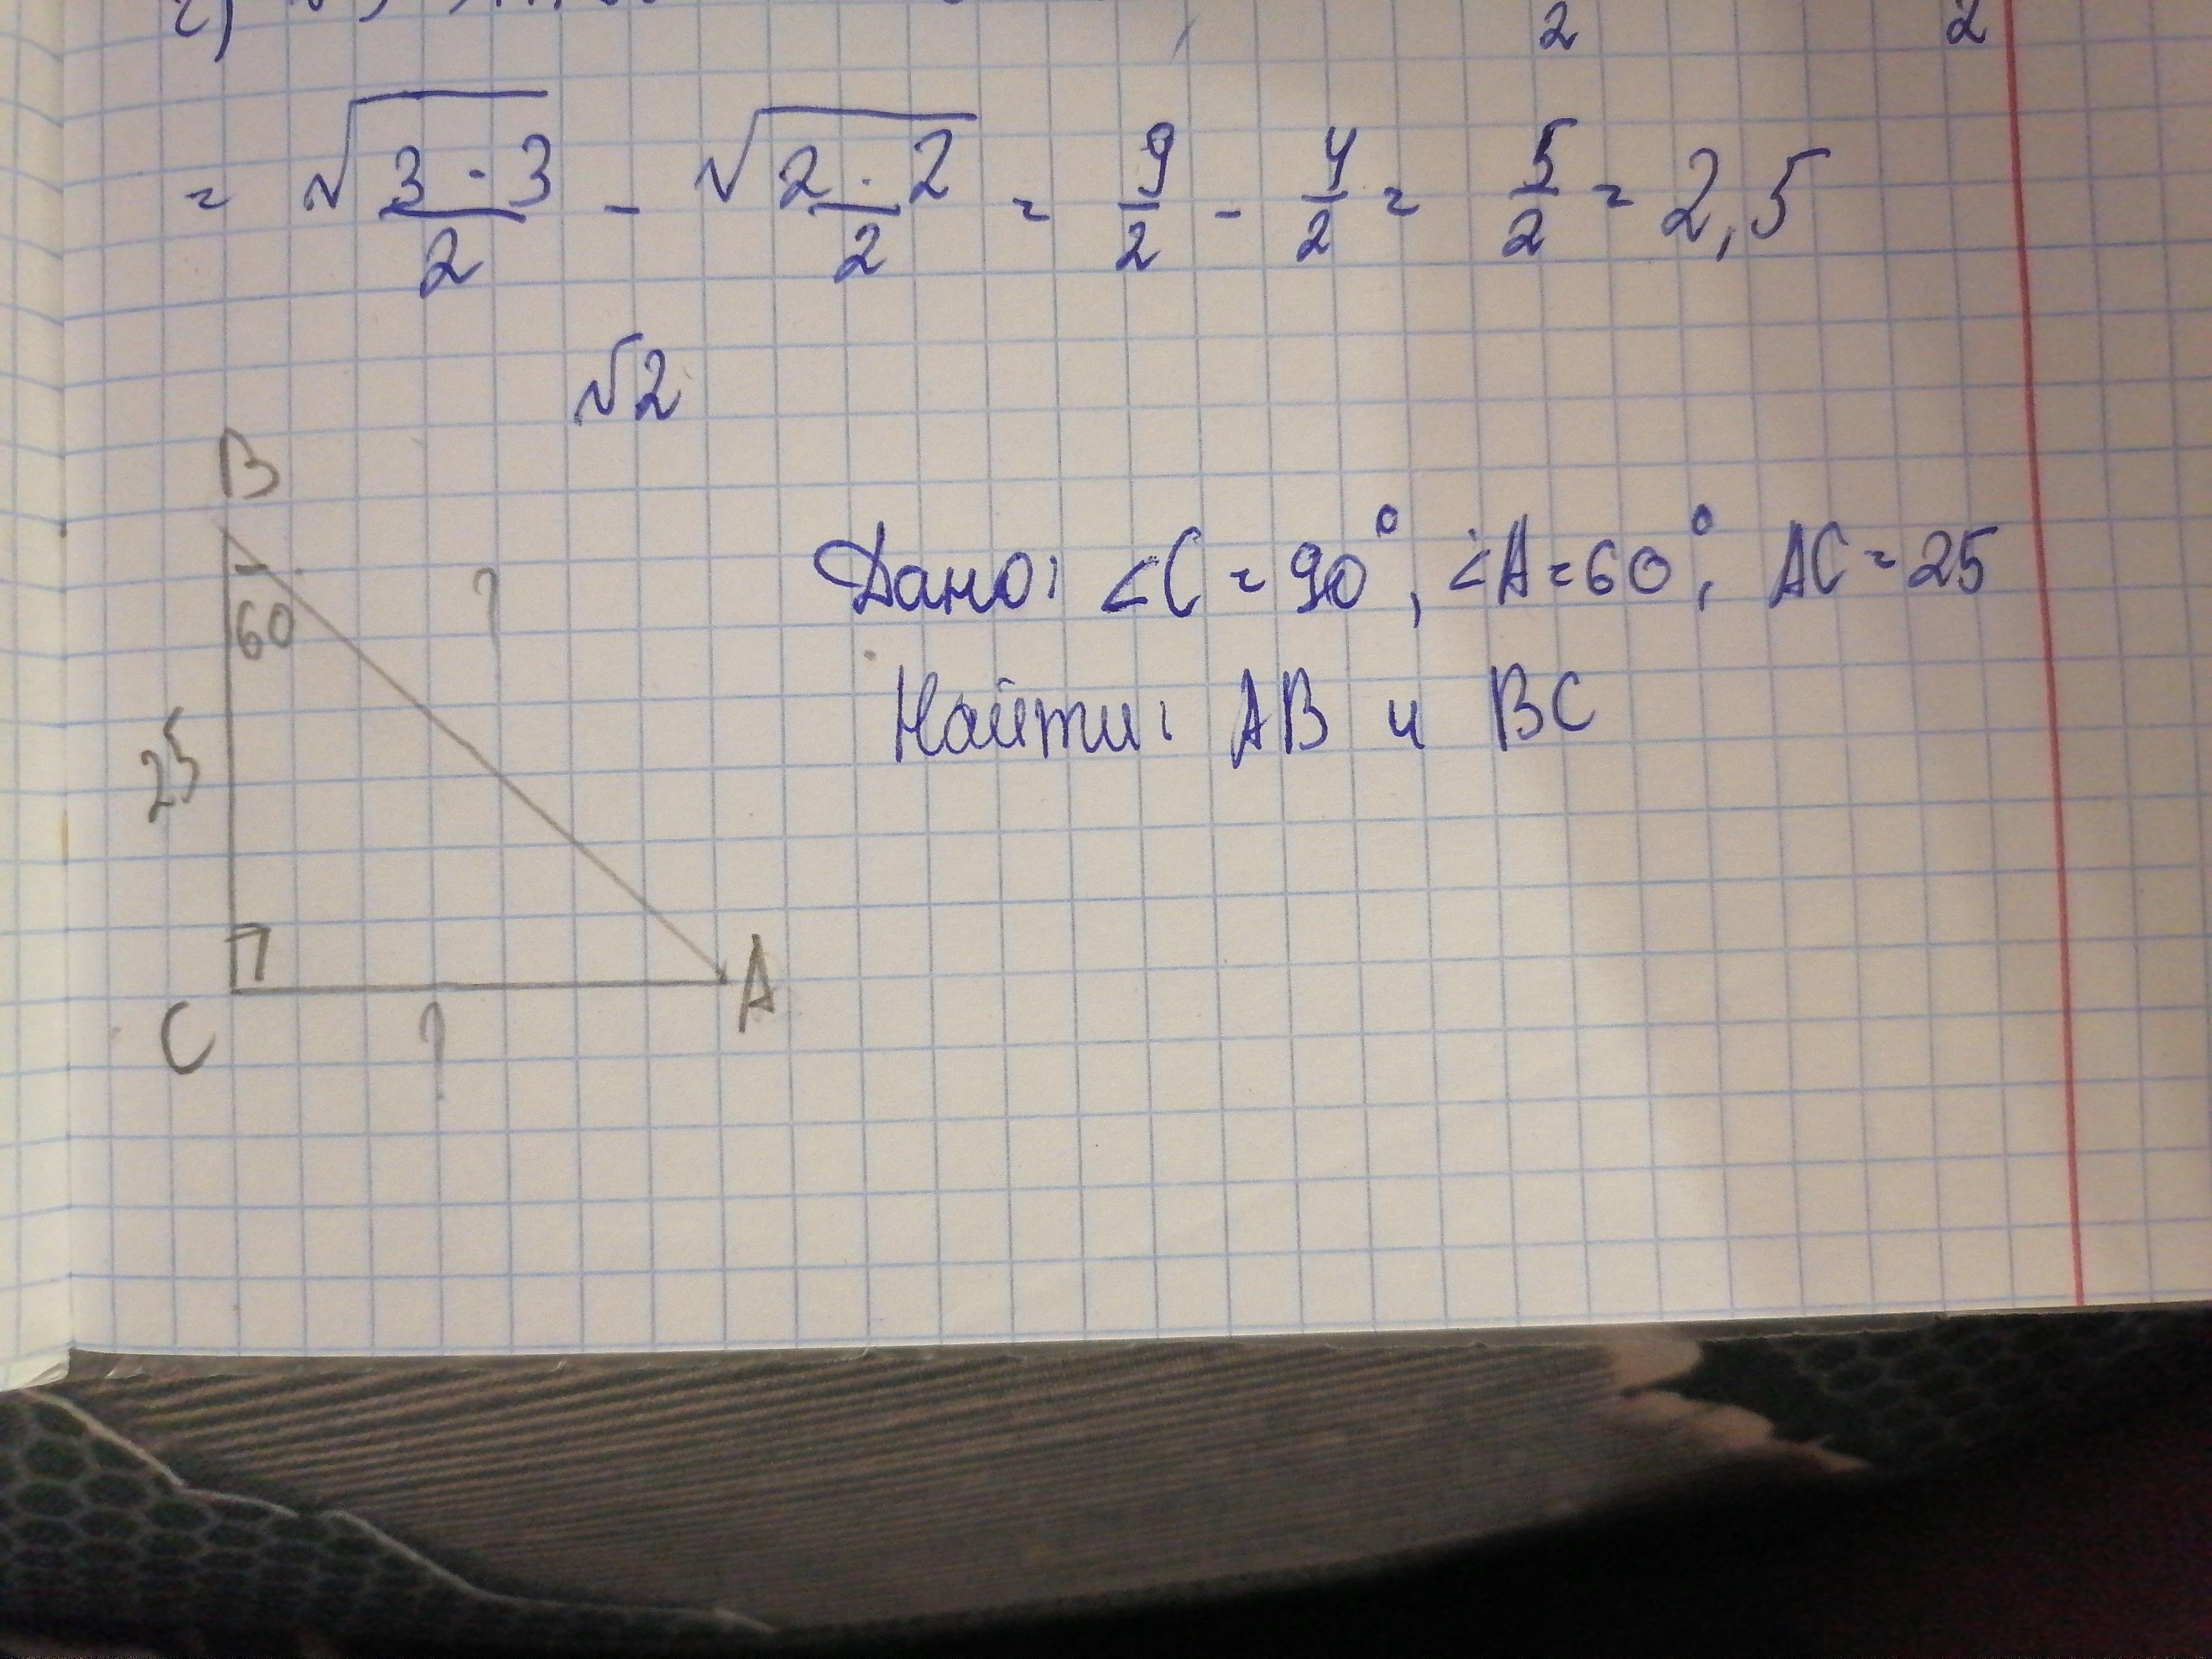 2 2
= √3·3/2 - √2·2/2 = 9/2 - 4/2 = 5/2 = 2,5
√2
B
60 ?
Дано: ∠C = 90°, ∠A = 60°, AC = 25
Найти: AB и BC
25
C ? A